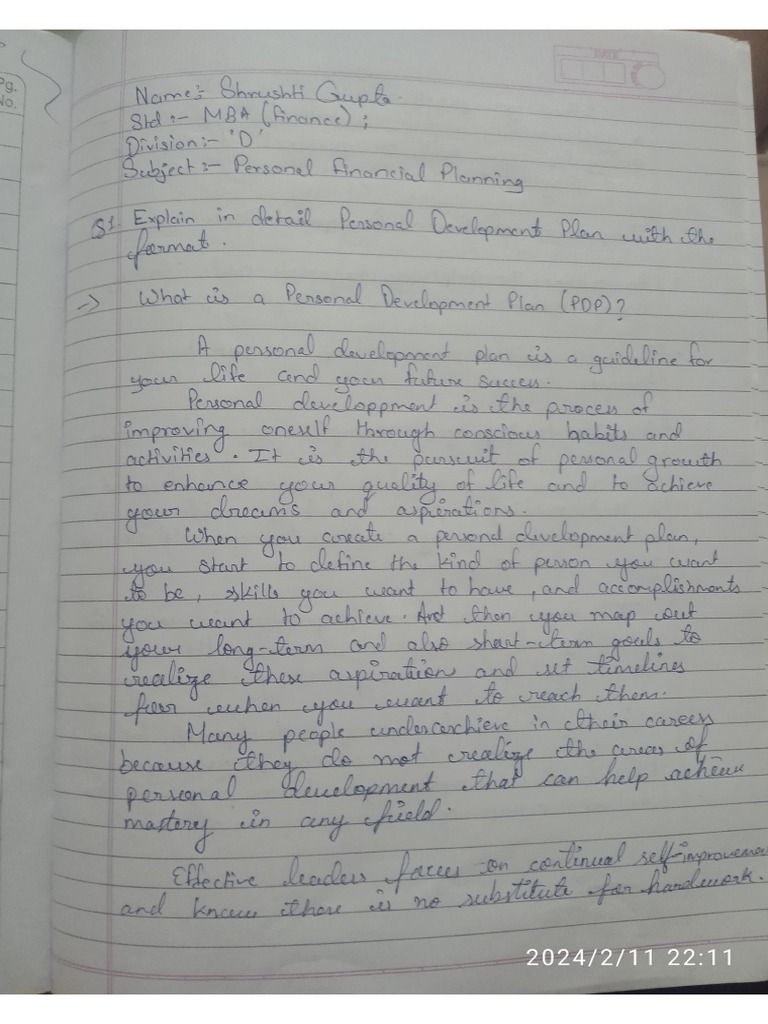 Pg.
No.
DATE
Name:- Shrushti Gupta.
Std :- MBA (Finance) ;
Division :- 'D'
Subject :- Personal Financial Planning
Q1 Explain in detail Personal Development Plan with the
format.
→ What is a Personal Development Plan (PDP)?
A personal development plan is a guideline for
your life and your future success.
Personal developpment is the process of
improving oneself through conscious habits and
activities. It is the pursuit of personal growth
to enhance your quality of life and to achieve
your dreams and aspirations.
When you create a personal development plan,
you start to define the kind of person you want
to be, skills you want to have, and accomplishments
you want to achieve. And then you map out
your long-term and also short-term goals to
realize these aspiration and set timelines
for when you want to reach them.
Many people underachieve in their careers
because they do not realize the areas of
personal development that can help achieve
mastery in any field.
Effective leaders focus on continual self-improvemen
and know there is no substitute for hardwork.
2024/2/11 22:11